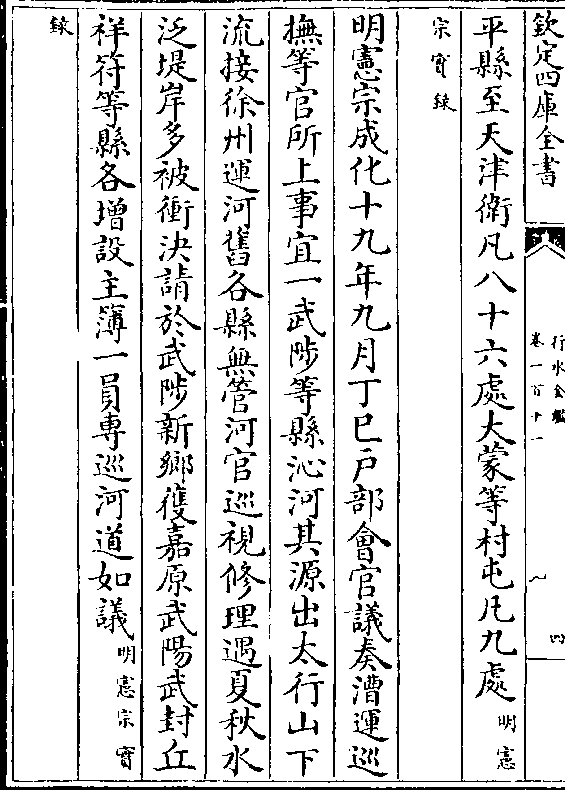 欽定四庫全書
行水金鑑
卷一百十一
四
平縣至天津衛凡八十六處大蒙等村屯凡九處明憲
宗實錄
明憲宗成化十九年九月丁巳戶部會官議奏漕運巡
撫等官所上事宜一武陟等縣沁河其源出太行山下
流接徐州運河舊各縣無管河官巡視修理遇夏秋水
泛堤岸多被衝決請於武陟新鄉獲嘉原武陽武封丘
祥符等縣各增設主簿一員專巡河道如議明憲宗實
錄